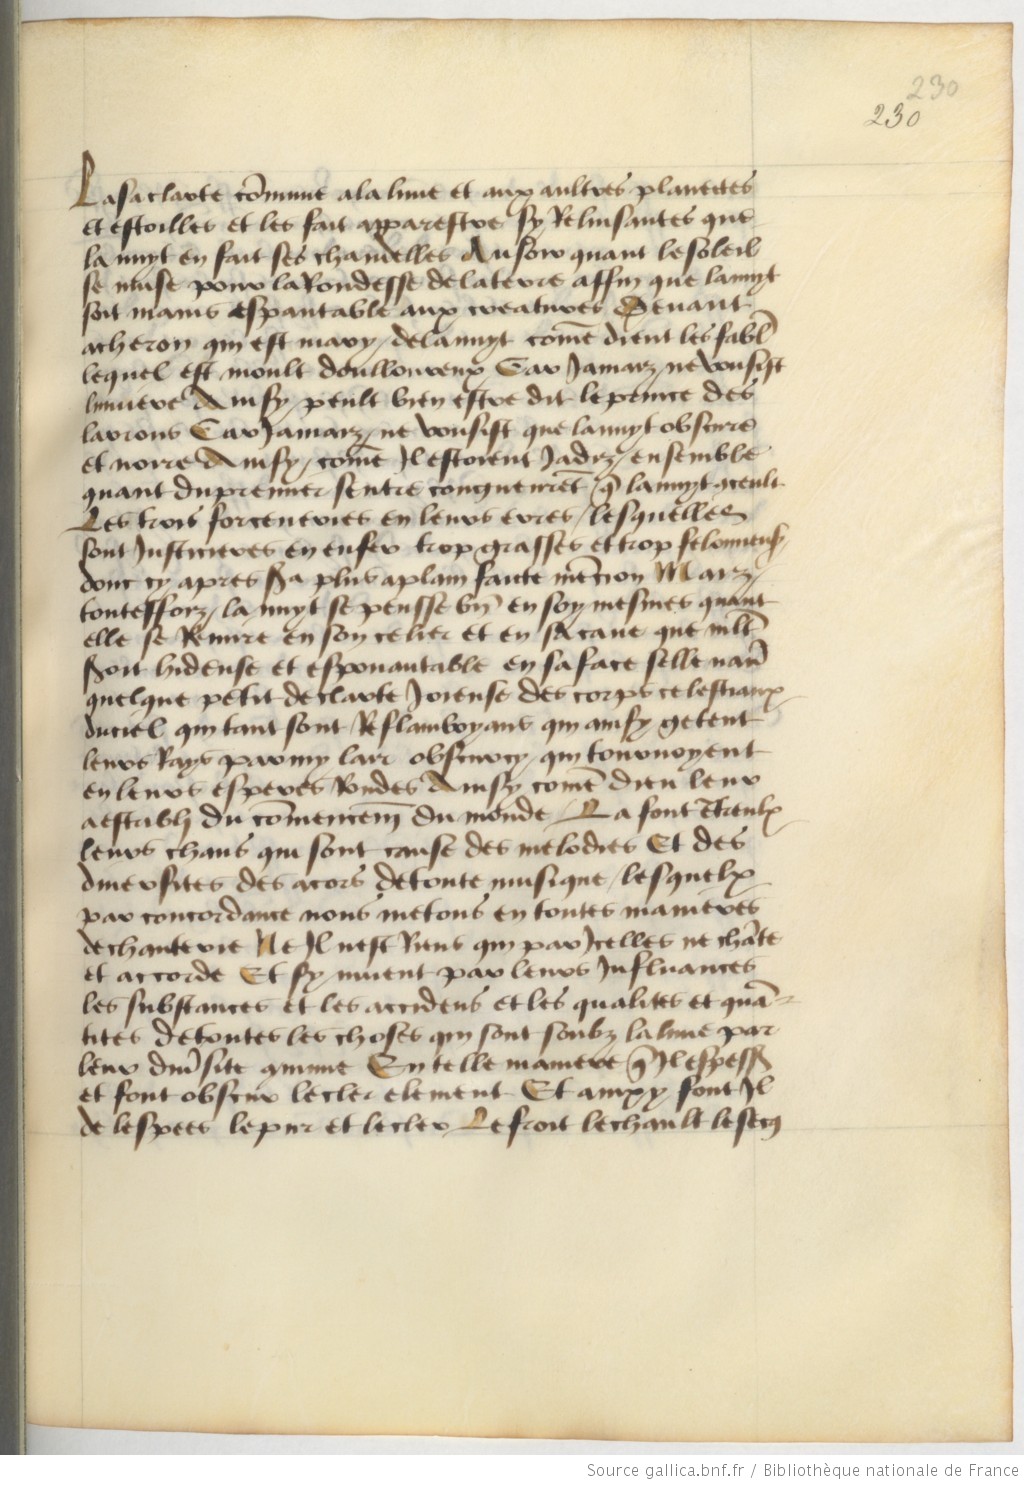 230
230
La sa clarte cõmune a la lune et aux aultres planetes
et estoilles et les fait apparestre sy Reluisantes que
la nuyt en fait ses chandelles Au soir quant le soleil
se muse pour la Rondesse de la terre affin que la nuyt
soit mains espantable aux creatures Devant
acheron qui est mary / de la nuyt come dient les fabl
lequel est moult doulloureux Car Jamaiz ne vousist
lumiere Ainsy / peult bien estre dit le prince des
larrons Car Jamaiz / ne vousist que la nuyt obscure
et noire Ainsy / come Il estoient Jadiz / ensemble
quant du premier sentre conqueiret q la nuyt
Les trois forceneries en leurs eures / lesquelles
sont Justicieres en enfer trop grasses et trop felonneus /
donc cy apres sera plus a plain faite mẽcion Maiz /
touteffoiz / la nuyt se pensse bñ en soy mesmes quant
elle se Remire en son celier et en sa cave que mlt
seroit hideuse et espouantable en sa face selle nau
quelque petit de clarte Joieuse des corps celestiaux
du ciel qui tant sont Reflamboyans qui ainsy getent
leurs Rays parmy lair obscurcy / qui tournoyent
en leurs esperes Rondes Ainsy come dieu leur
a estably du cõmencem du monde / La font Itreulx
leurs chans qui sont cause des melodies Et des
diuersites des acors de toute musique / lesquelx
par concordance nous metons en toutes manieres
de chanterie Ne Il nest Riens qui par Icelles ne chãte
et accorde Et sy muent par leurs Influances
les substances et les accidens et les qualites et quã=
tites de toutes les choses qui sont soubz la lune par
leur diusite En telle maniere q Il espess
et font obscur le cler element Et ainxy font Il
de lespees le pur et le cler Le froit le chault le secq
Source gallica.bnf.fr / Bibliothèque nationale de France